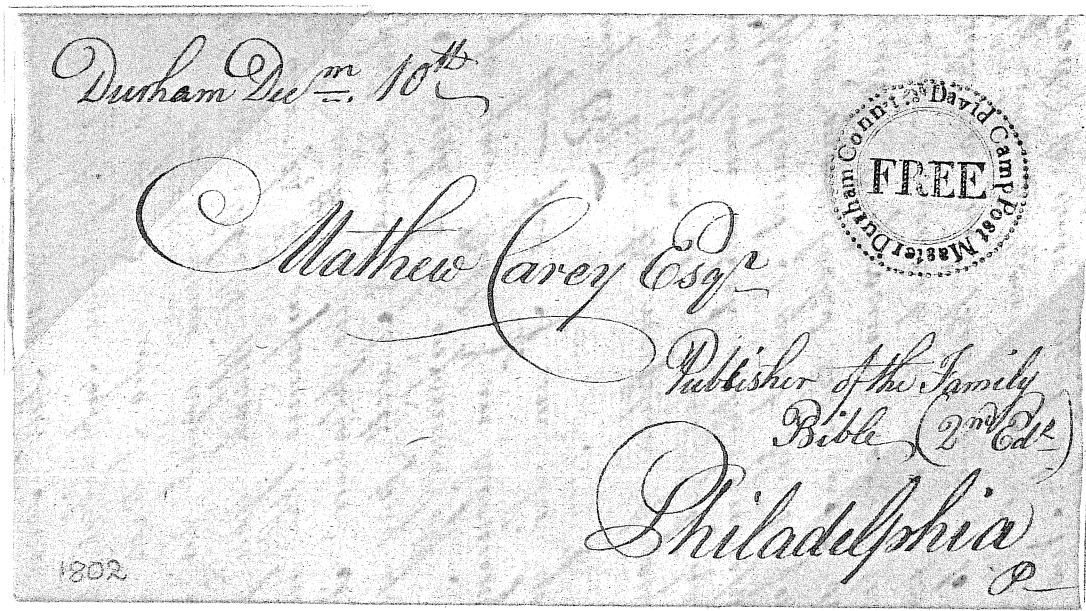 Durham Decm. 10th
David Camp Post Master Durham Conn:t
FREE
Mathew Carey Esqr
Publisher of the Family
Bible (2nd Edn)
Philadelphia
P
1802